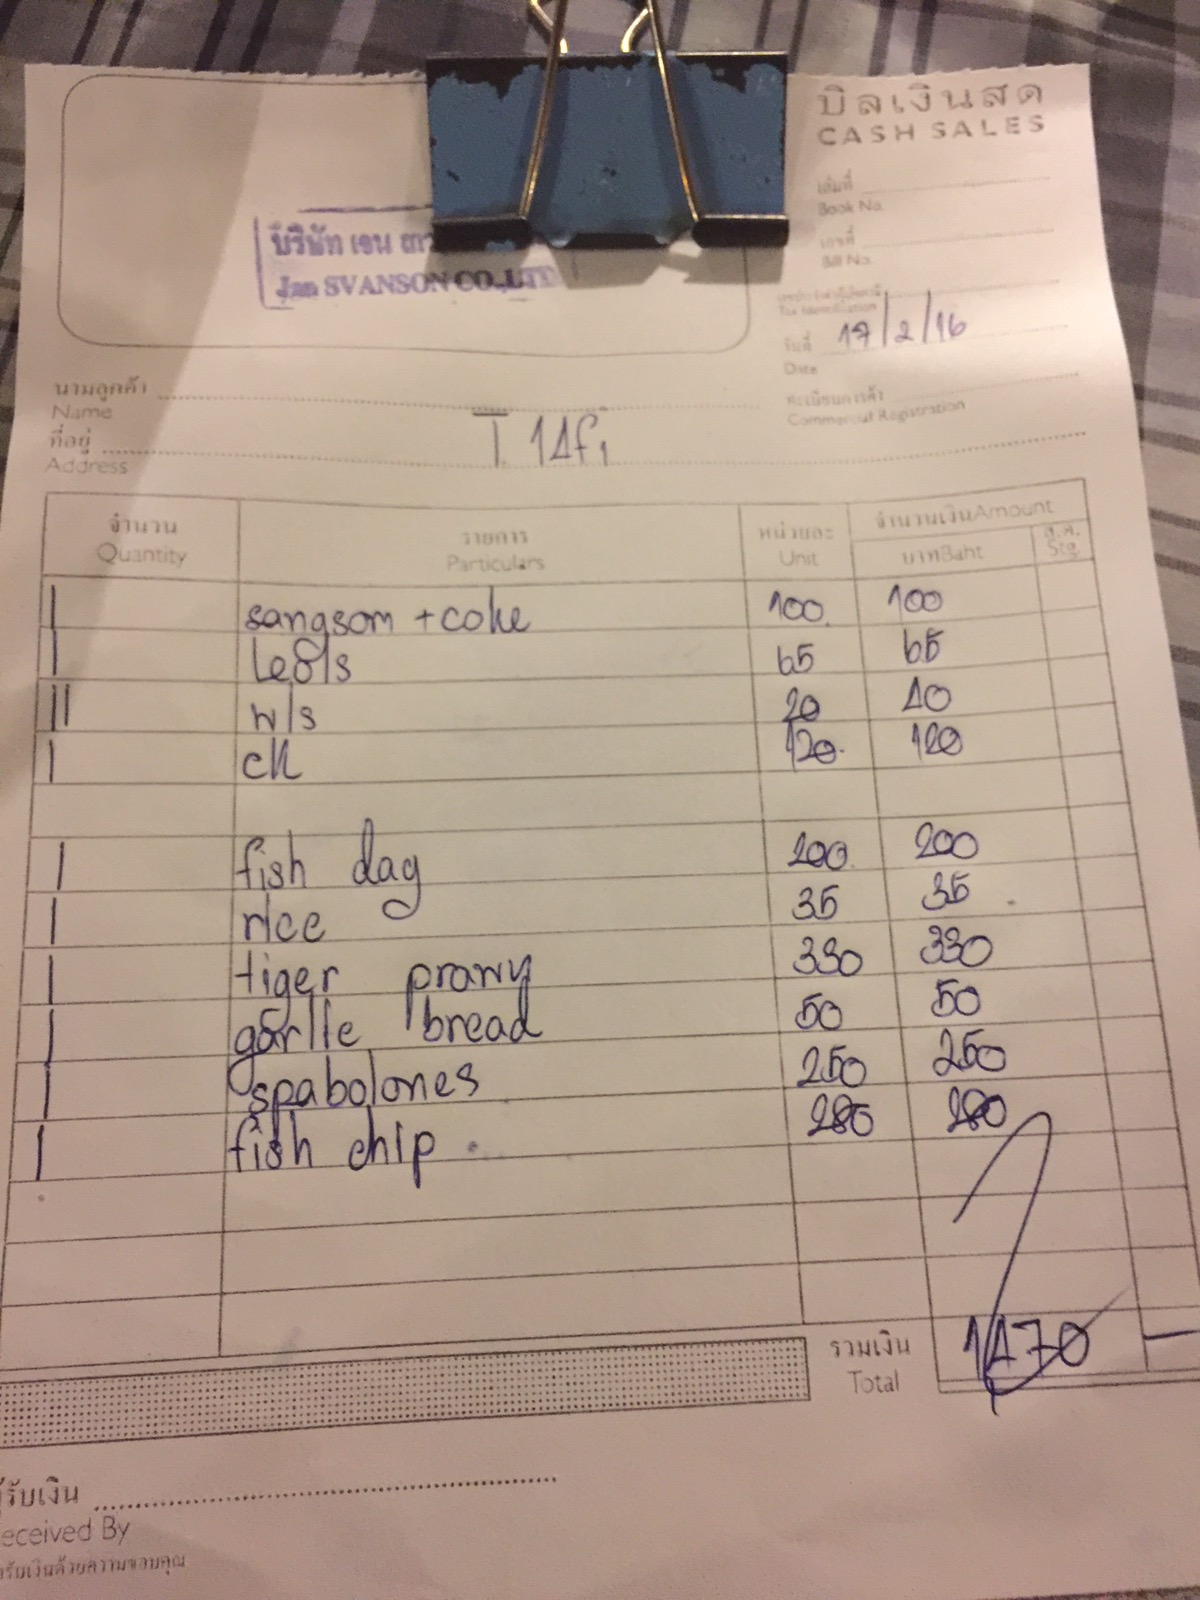 บิลเงินสด
CASH SALES
เล่มที่
Book No.
เลขที่
Bill No.
บริษัท เจน
Jan SVANSON CO.,LTD
Tax Identification
วันที่ 17/2/16
Date
นามลูกค้า
Name
ทะเบียนการค้า
Commercial Registration
ที่อยู่ T. 14
Address
จำนวน รายการ หน่วยละ จำนวนเงิน Amount
Quantity Particulars Unit บาท Baht ส.ต. Stg.
| sangsom + coke 100 100
| Le8/s 65 65
|| w/s 20 40
| ck 120 120
| fish dag 200 200
| rice 35 35
| tiger prawy 330 330
| garlle bread 50 50
| spabolones 250 250
| fish chip 280 280
รวมเงิน 1470 —
Total
ผู้รับเงิน
eceived By
รับเงินด้วยความขอบคุณ